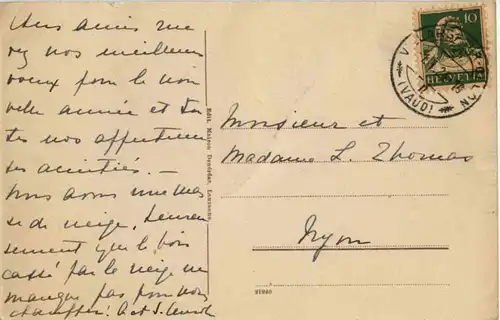 Chers amis rece
vez nos meilleurs
voeux pour la nou
velle année et tou
tes nos affectueu
ses amitiés. —
Nous avons une mas
se de neige, heureu
sement que le bois
cassé par la neige ne
manque pas pour nous
chauffer. A et J.
Edit. Maison Deriédaz, Lausanne.
10
HELVETIA
(VAUD)
Monsieur et
Madame L. Thomas
Nyon